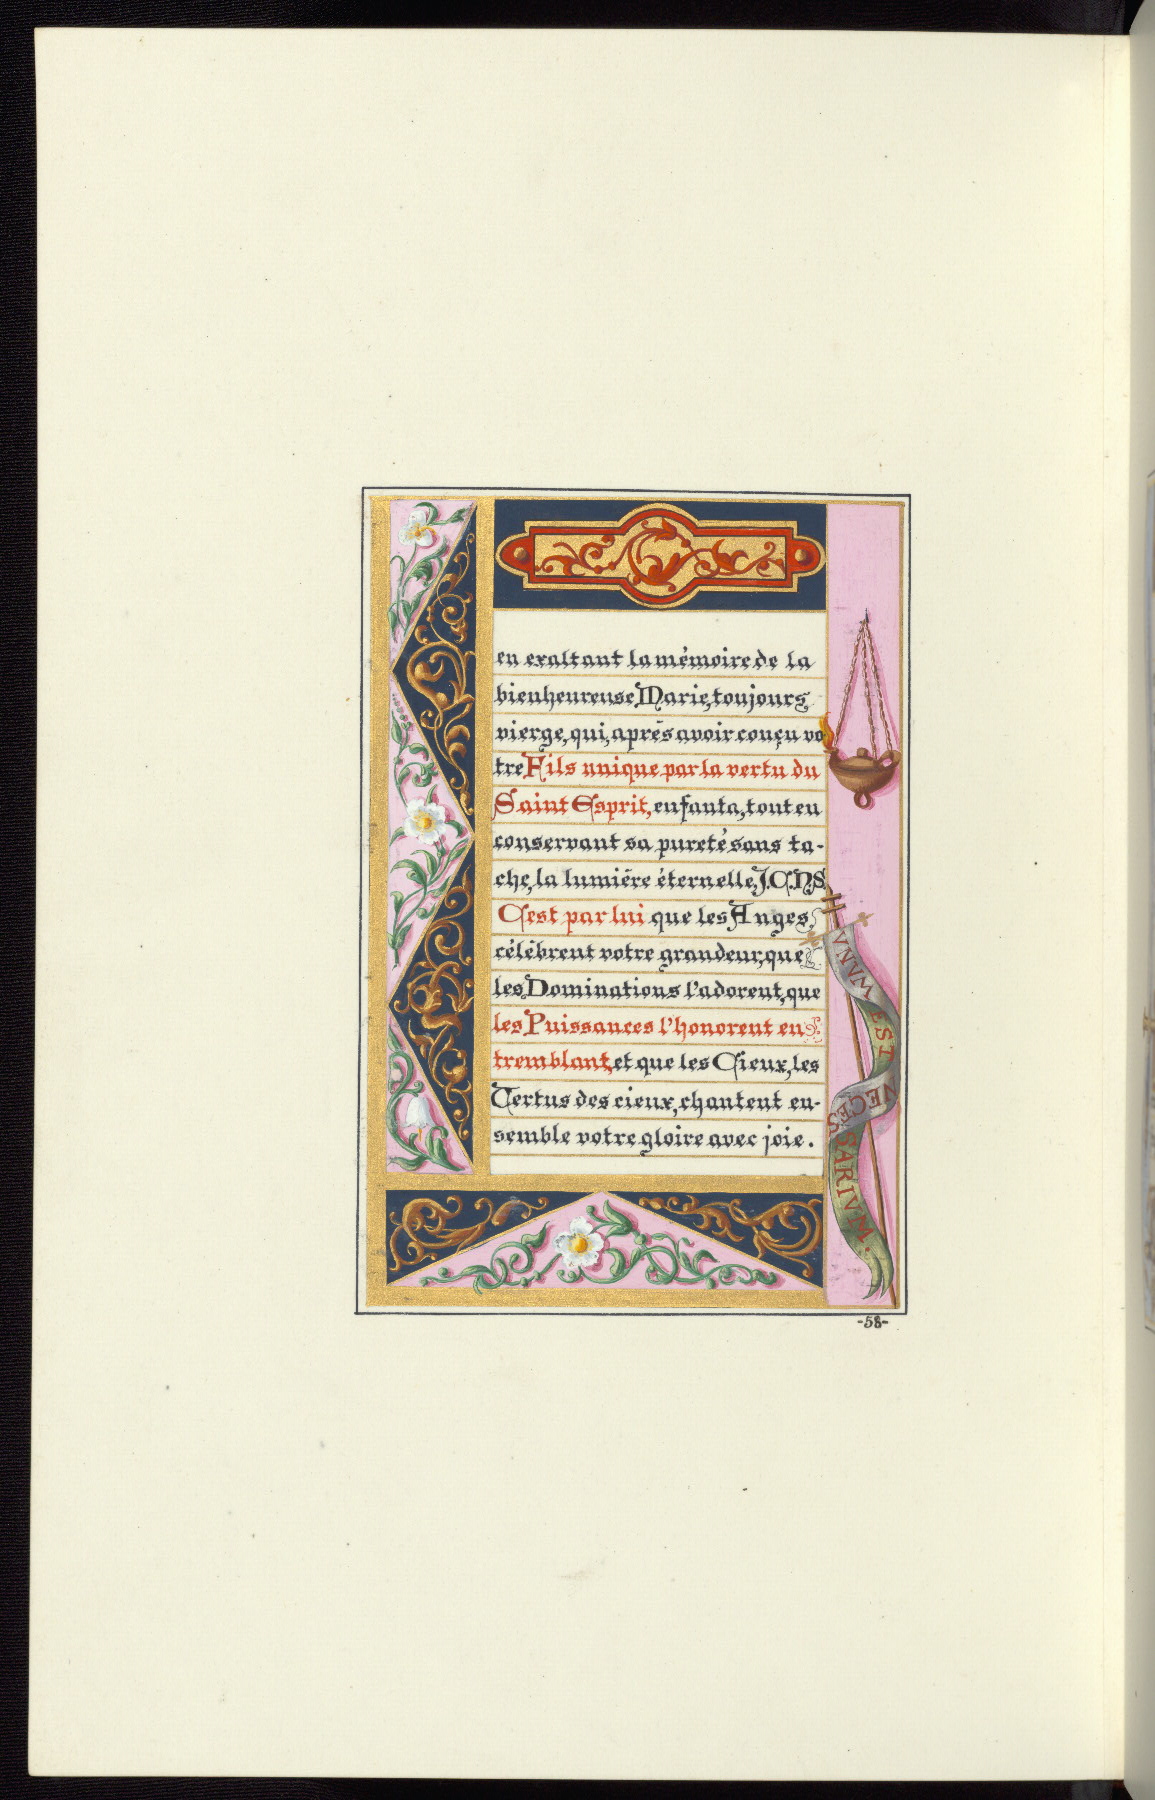 en exaltant la mémoire de la
bienheureuse Marie, toujours
vierge, qui, aprés avoir conçu vo
tre Fils unique par la vertu du
Saint Esprit, enfanta, tout en
conservant sa pureté sans ta-
che, la lumiére éternelle, J.C.N.S
C'est par lui que les Anges
célèbrent votre grandeur, que
les Dominations l'adorent, que
les Puissances l'honorent en
tremblant, et que les Cieux, les
Vertus des cieux, chantent en-
semble votre gloire avec joie.
VNVM EST NECESSARIVM.
-58-